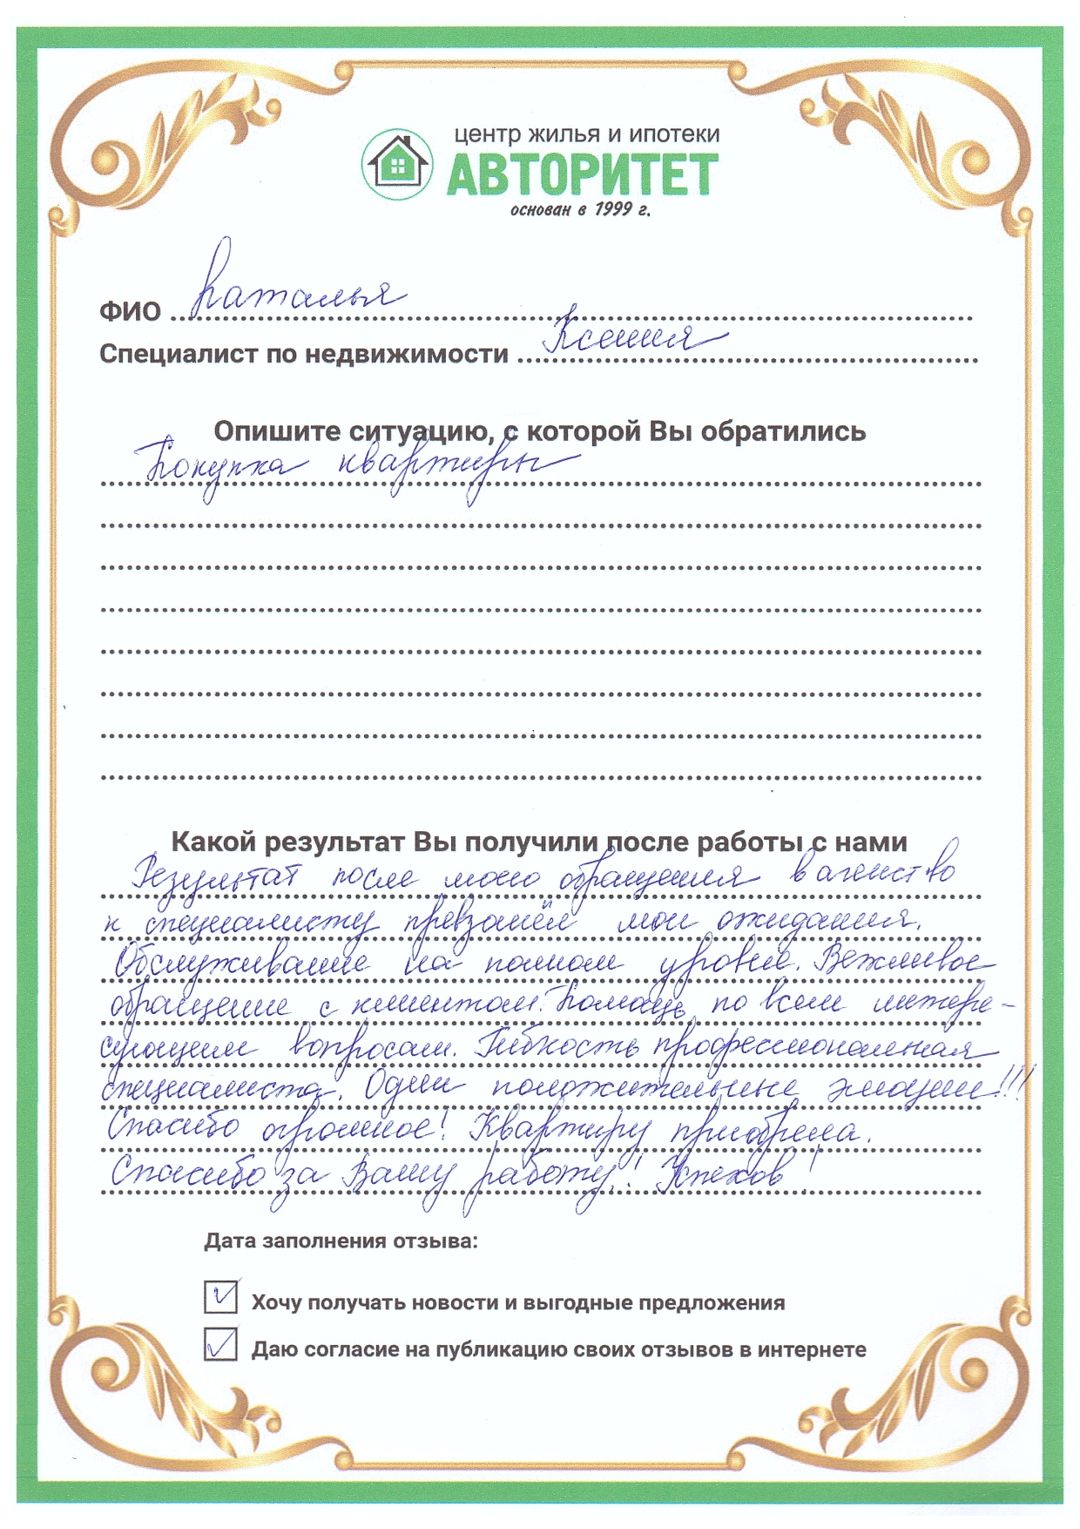 центр жилья и ипотеки
АВТОРИТЕТ
основан в 1999 г.
ФИО Наталья
Специалист по недвижимости Ксения
Опишите ситуацию, с которой Вы обратились
Покупка квартиры
Какой результат Вы получили после работы с нами
Результат после моего обращения в агенство
к специалисту превзашёл мои ожидания.
Обслуживание на полном уровне. Вежливое
обращение с клиентом. Помощь по всем интере-
сующим вопросам. Гибкость профессиональная
специалиста. Одни положительные эмоции!!!
Спасибо огромное! Квартиру приобрела.
Спасибо за Вашу работу! Успехов!
Дата заполнения отзыва:
Хочу получать новости и выгодные предложения
Даю согласие на публикацию своих отзывов в интернете